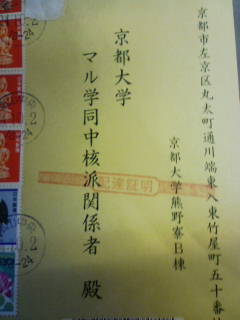 京都市左京区丸太町通川端東入東竹屋町五十番
京都大学熊野寮B棟
京都大学
マル学同中核派関係者 殿
配達証明